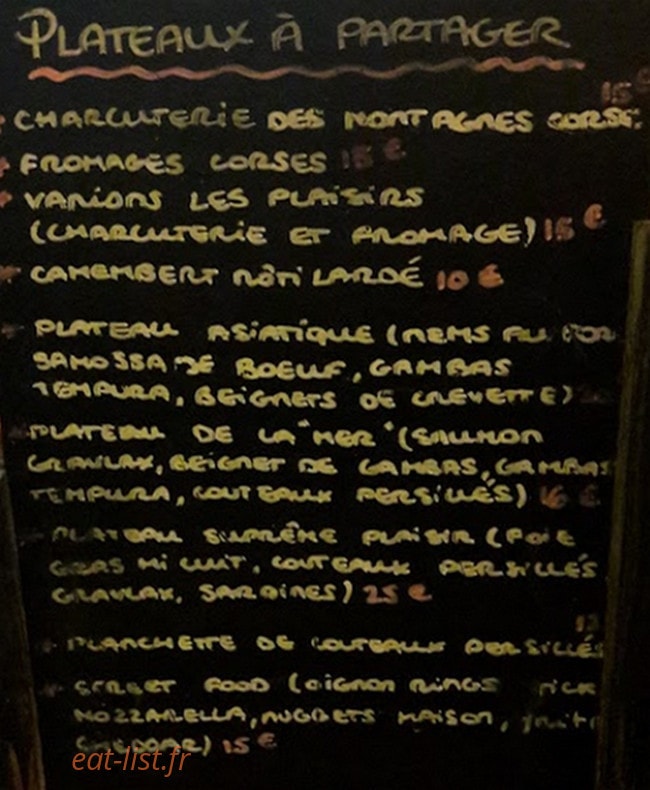 PLATEAUX À PARTAGER
15 €
CHARCUTERIE DES MONTAGNES CORSE
FROMAGES CORSES 15 €
VARIONS LES PLAISIRS
(CHARCUTERIE ET FROMAGE) 15 €
CAMEMBERT RÔTI LARDÉ 10 €
PLATEAU ASIATIQUE (NEMS AU
SAMOSSA DE BOEUF, GAMBAS
TEMPURA, BEIGNETS DE CREVETTE)
PLATEAU DE LA "MER" (SAUMON
GRAVLAX, BEIGNET DE GAMBAS, GAMBAS
TEMPURA, COUTEAUX PERSILLÉS) 16 €
PLATEAU SUPRÊME PLAISIR (FOIE
GRAS MI CUIT, COUTEAUX PERSILLÉS
GRAVLAX, SARDINES) 25 €
PLANCHETTE DE COUTEAUX PERSILLÉS
STREET FOOD (OIGNON RINGS STICK
MOZZARELLA, NUGGETS MAISON,
CHEDDAR) 15 €
eat-list.fr